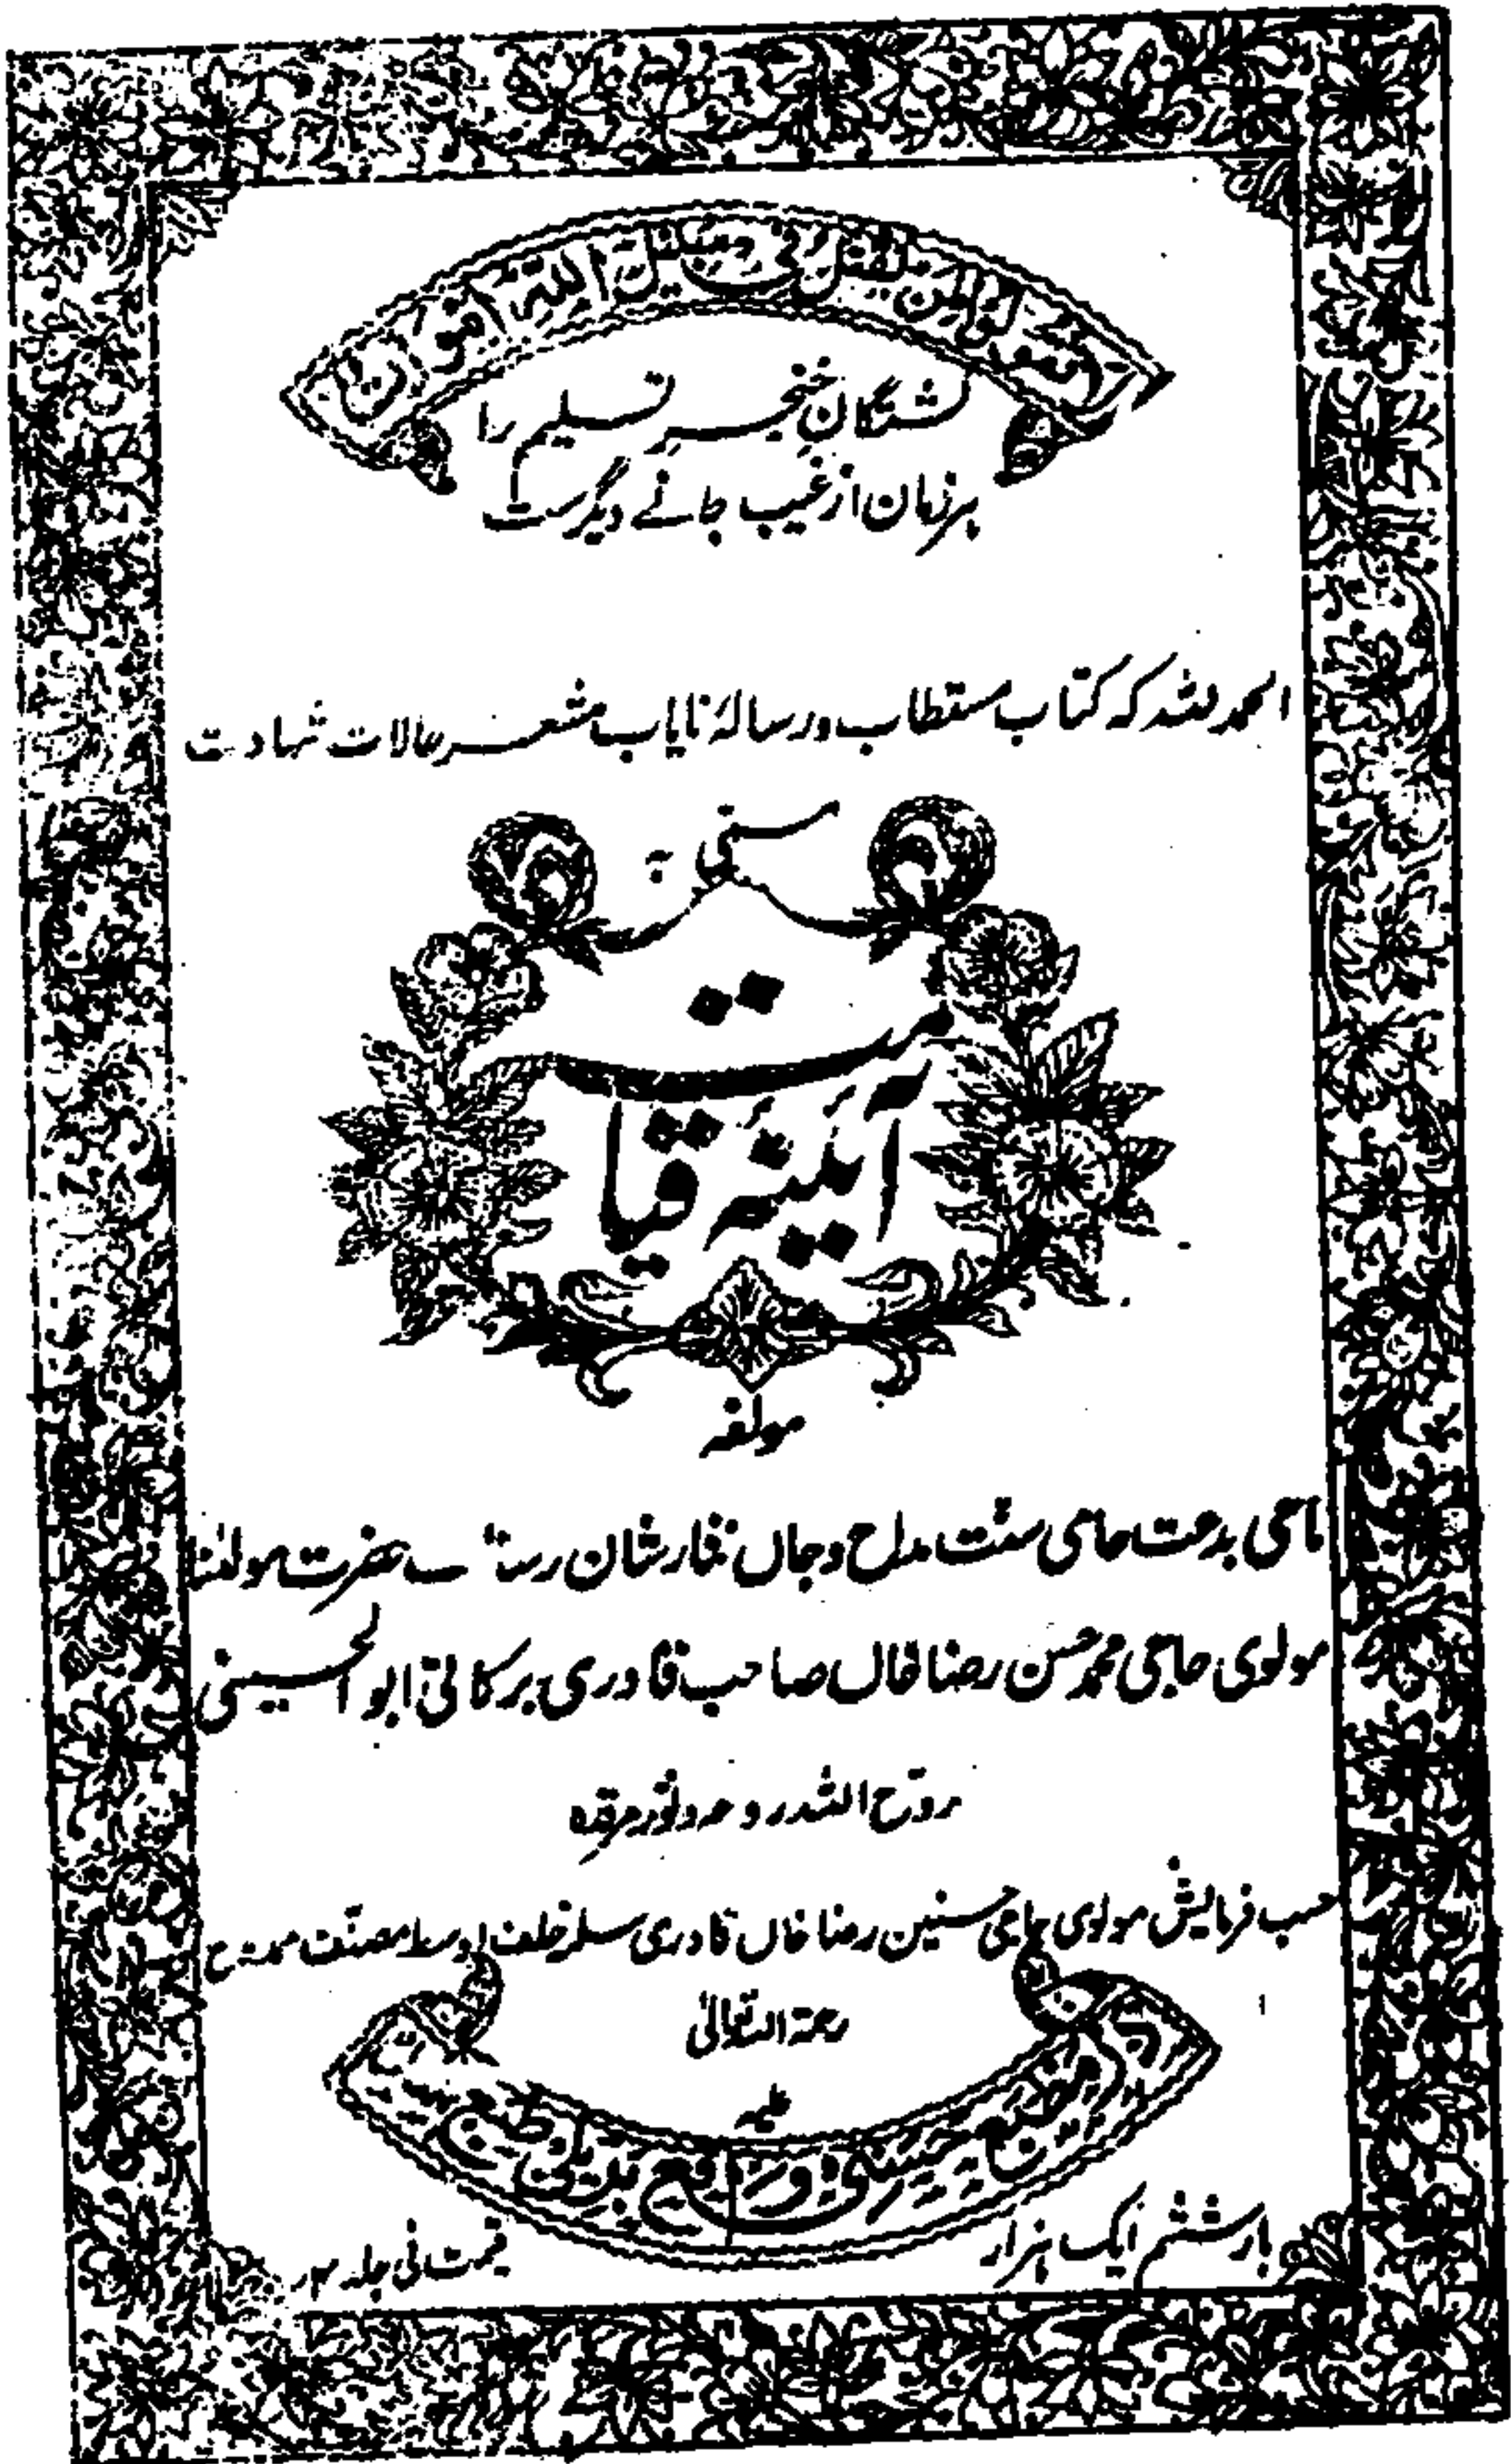 ولا تقولوا لمن یقتل فی سبیل اللہ اموات
کشتگانِ خنجرِ تسلیم را
ہر زمان از غیب جانے دیگرست
الحمد للہ کہ کتاب مستطاب و رسالۂ نایاب مشعر حالات شہادت
مسمّٰی بہ
آئینۂ قیامت
مولفہ
ماحی بدعت حامی سنّت مداح و جاں نثار شان رسالت حضرت مولٰنا
مولوی حاجی محمد حسن رضا خاں صاحب قادری برکاتی ابو الحسینی
روّح اللہ روحہ و نوّر مرقدہ
حسب فرمایش مولوی حاجی حسنین رضا خاں قادری سلمہ خلف اوسط مصنّف ممدوح
رحمۃ اللہ تعالیٰ
علیہ
مطبع حسنی واقع بریلی طبع
بار ششم ایک ہزار
قیمت فی جلد ۴؍